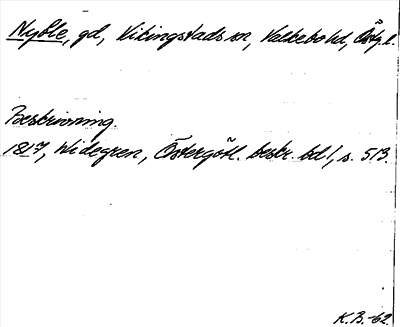 Nybble, gd, Vikingstads sn, Valkebo hd, Östg. l.
Beskrivning.
1817, Widegren, Östergötl. beskr. bd 1, s. 513.
K.B. -62.